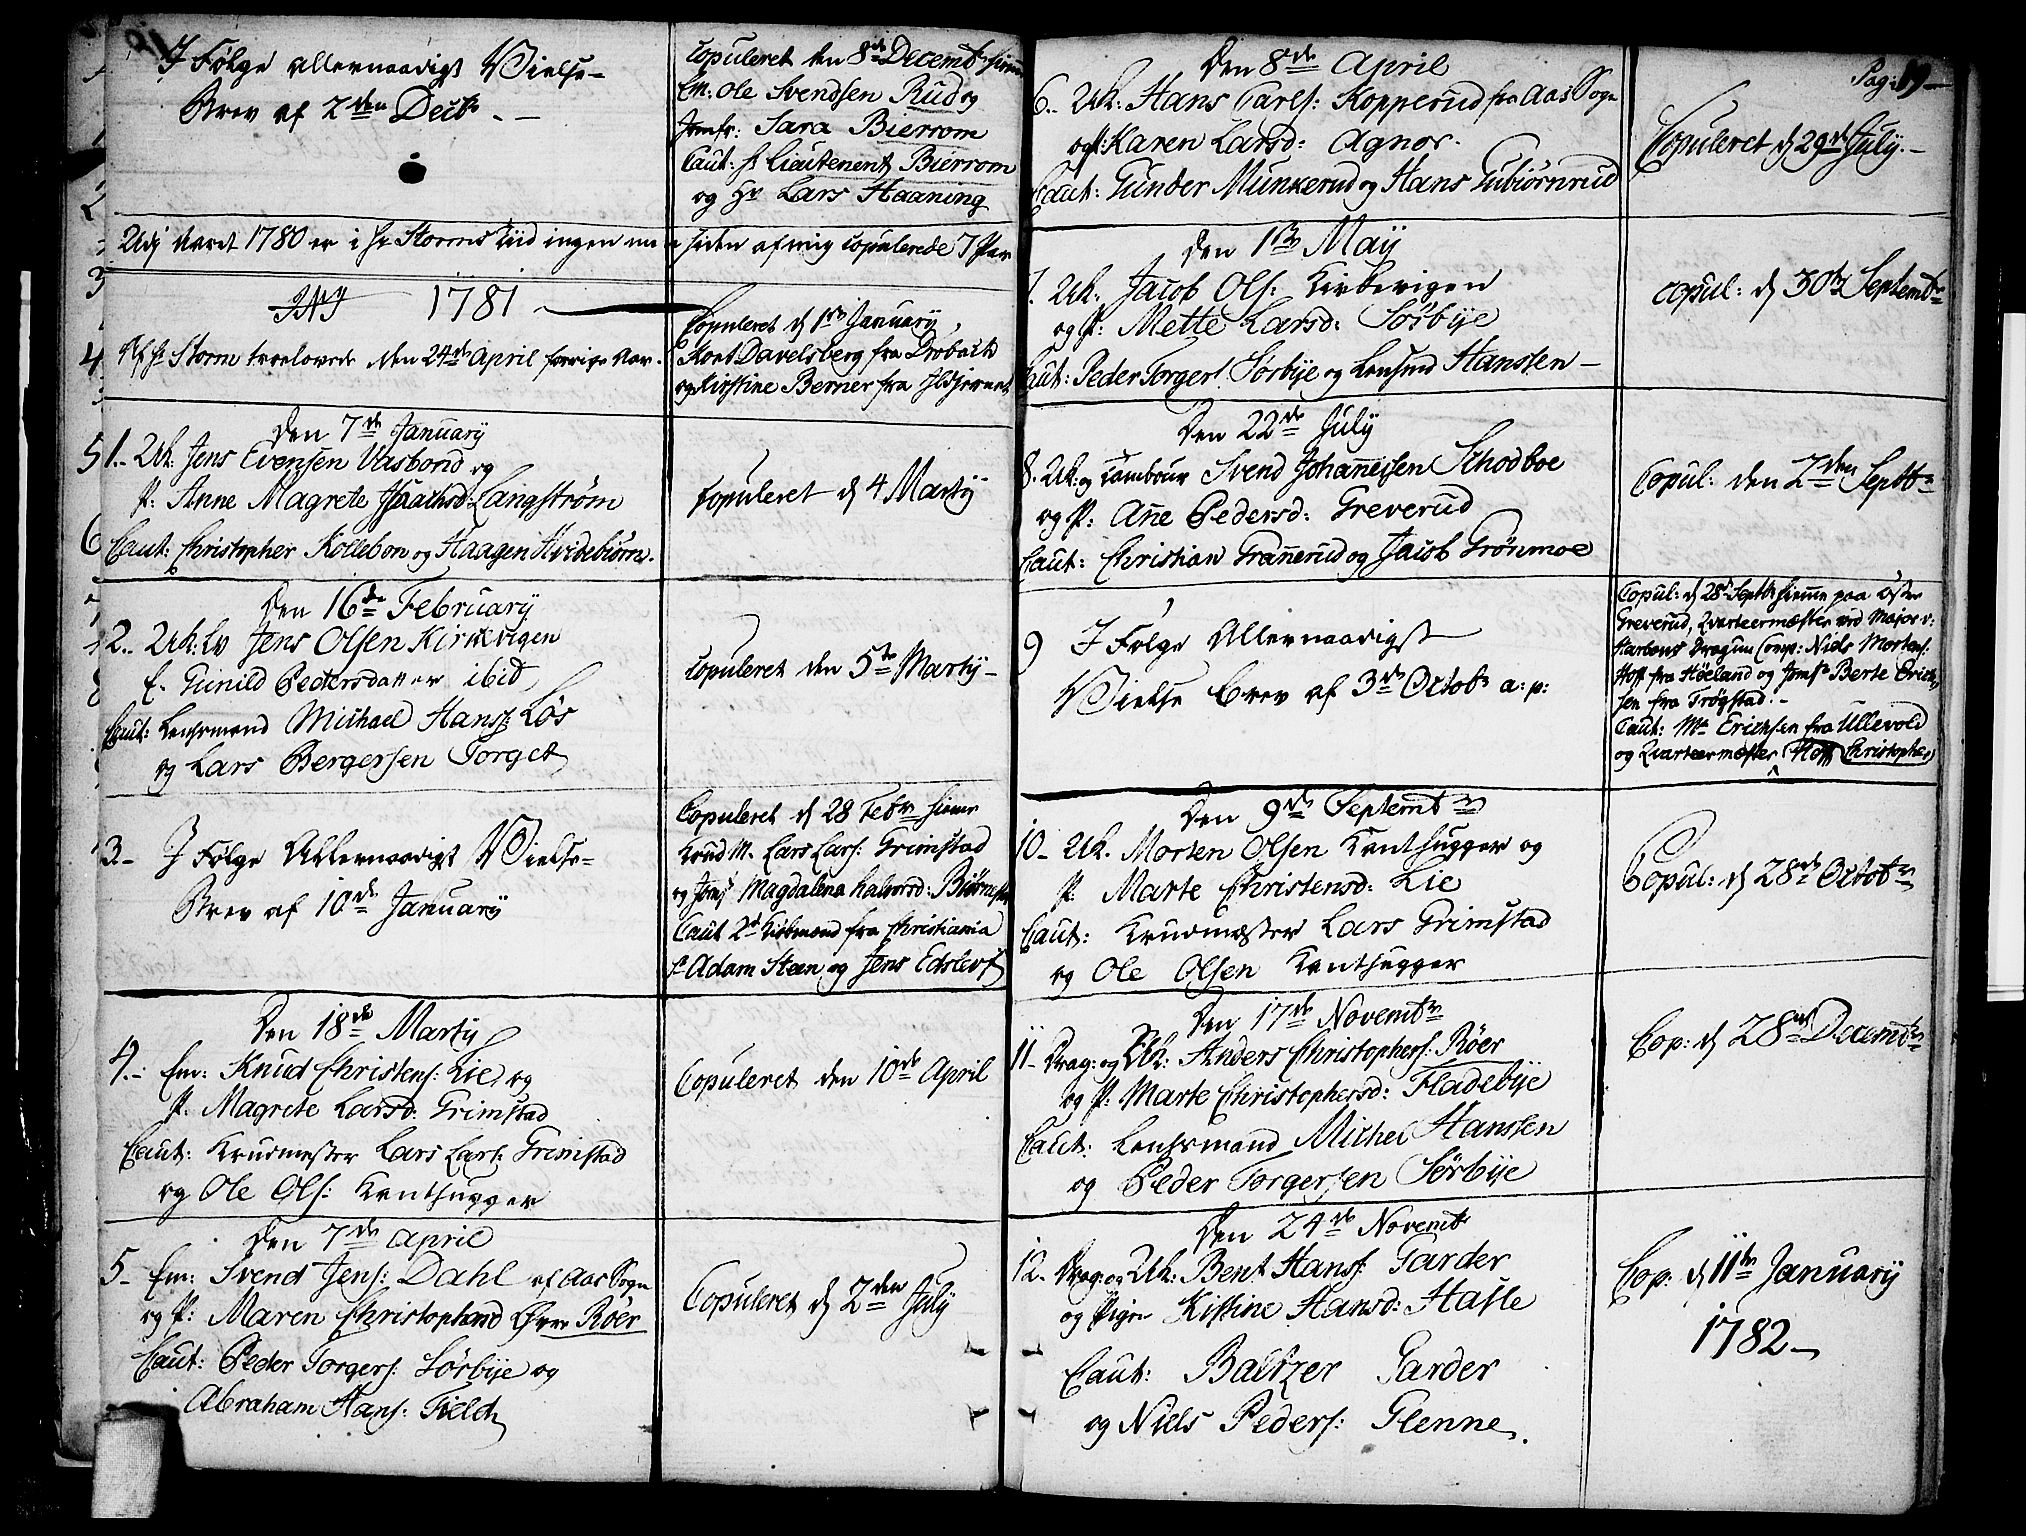 I Følge allernaadigst Vielse-
Brev af 2den Decbr. -
Copuleret den 8de Decembr hieme
Em: Ole Svendsen Rud og
Jomfr: Sara Bierrom
Caut: Hr Lieutenent Bierrom
og Hr Lars Haaning
Udj Aaret 1780 er i Hr Storms Tiid ingen men siden af mig copulerede 7 Par
1781
Af Hr Storm trolovede den 24de April forrige Aar.
Copuleret d 1ste January,
Kort Davelsberg fra Drøbach
og Kirstine Berner fra
Den 7de January
1.- Uk: Jens Evensen Vasbond og
P: Anne Magrete Isaachsd: Langstrøm
Caut: Christopher Kollebon og Haagen Hvidebiørn.
Copuleret d 4 Marty
Den 16de February
2.. Uk: Lv Jens Olsen Kirkevigen
E. Gunild Pedersdatter ibid
Caut: Lensmand Michael Hans: Løs
og Lars Bergersen Torget
Copuleret den 5te Marty-
3.- I Følge Allernaadigst Vielse-
Brev af 10de January
Copuleret d 28 Febr hieme
Krud M. Lars Lars: Grimstad
og Jomf Magdalena Halvorsd:
Caut 2de Kiøbmænd fra Christiania
Hr Adam Steen og Jens Edslevs
Den 18de Marty
4.-: Em: Knud Christens: Lie, og
P. Magrete Larsd: Grimstad
Caut: Krudmester Lars Lars: Grimstad
og Ole Ols: Kanthugger
Copuleret den 10de April
Den 7de April
5- Em: Svend Jens: Dahl af Aas Sogn
og P: Maren Christophersd Øvre Röer
Caut: Peder Torgers: Sörbÿe og
Abraham Hans: Field
Copuleret d 2den July
Pag: 19-
Den 8de April
6.. Uk: Hans Carls: Kopperud fra Aas Sogn
og P: Karen Larsd: Agnor.
Caut: Gunder Munkerud og Hans Gubiørnrud
Copuleret d 29de July.-
Den 1ste Maÿ
7. Uk. Jacob Ols: Kirkevigen
og P: Mette Larsd: Sörbÿe
Caut: Peder Torgers. Sörbÿe og Lensmd Hansten-
copul: d 30te Septembr
Den 22de July
8. Uk: og Tambour Svend Johannessen Schodboe
og P: Añe Pedersd: Greverud
Caut: Christian Grañerud og Jacob Grönmoe
Copul: den 2den Septbr
9 I Følge Allernaadigst
Vielse Brev af 3de Octobr a: p:
Copul: d 28de Septbr hieme paa Øster
Greverud, Qvarteermester ved Major v:
Harboes Dragun Comp: Niels Mortens:
Hoff fra Høeland og Jomfr Berte Erich-
sen fra Trøgstad.-
Caut: Mr Erichsen fra Ullevold
og Qvarteermester Hoff Christopher
Den 9de Septembr
10- Uk. Morten Olsen Kanthugger og
P. Marte Christensd: Lie
Caut: Krudmester Lars Grimstad
og Ole Olsen Kanthugger
Copul: d 28de Octobr
Den 17de Novembr
11- Drag: og Uk: Anders Christophers: Röer
og P: Marte Christophersd: Fladebÿe
Caut: Lensmand Michel Hansten
og Peder Torgersen Sörbÿe
Cop: d 28de Decembr
Den 24de Novembr
12- Drag: og Uk: Bent Hans: Garder
og Pigen Kistine Hansd: Hasle
Caut: Baltzer Garder
og Niels Peders: Glenne.
Cop: d 11te January
1782-